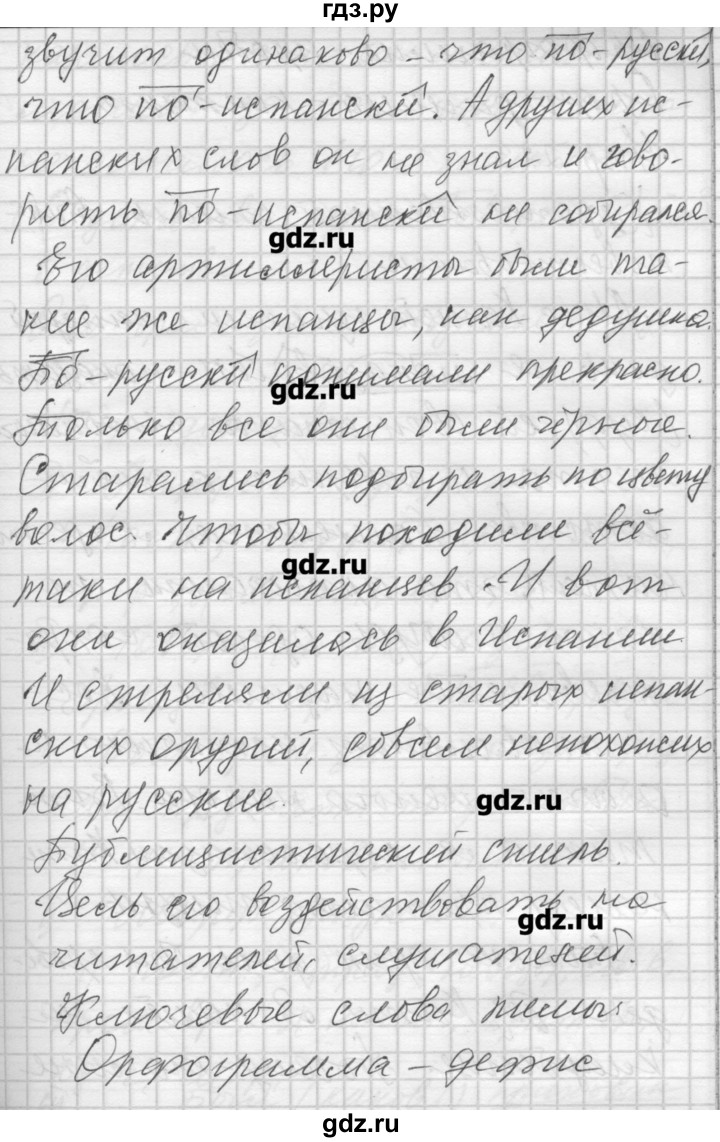 гдз.ру
звучит одинаково – что по-русски,
что по-испански. А других ис-
панских слов он не знал и гово-
рить по-испански не собирался.
gdz.ru
Его артиллеристы были та-
кие же испанцы, как дедушка.
По-русски понимали прекрасно.
gdz.ru
Только все они были чёрные.
Старались подбирать по цвету
волос. Чтобы походили всё-
таки на испанцев. И вот
gdz.ru
они оказалась в Испании.
И стреляли из старых испан-
ских орудий, совсем непохожих
на русские.
gdz.ru
Публицистический стиль.
Цель его воздействовать на
gdz.ru
читателей, слушателей.
Ключевые слова темы:
Орфограмма – дефис
gdz.ru